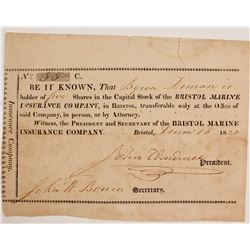 No 55 C.
BE IT KNOWN, That Byron Diman is
holder of five Shares in the Capital Stock of the BRISTOL MARINE
INSURANCE COMPANY, in BRISTOL, transferable only at the Office of
said Company, in person, or by Attorney.
Witness, the PRESIDENT and SECRETARY of the BRISTOL MARINE
INSURANCE COMPANY. Bristol, 18
John President.
John W. Bourn Secretary.
Insurance Company.